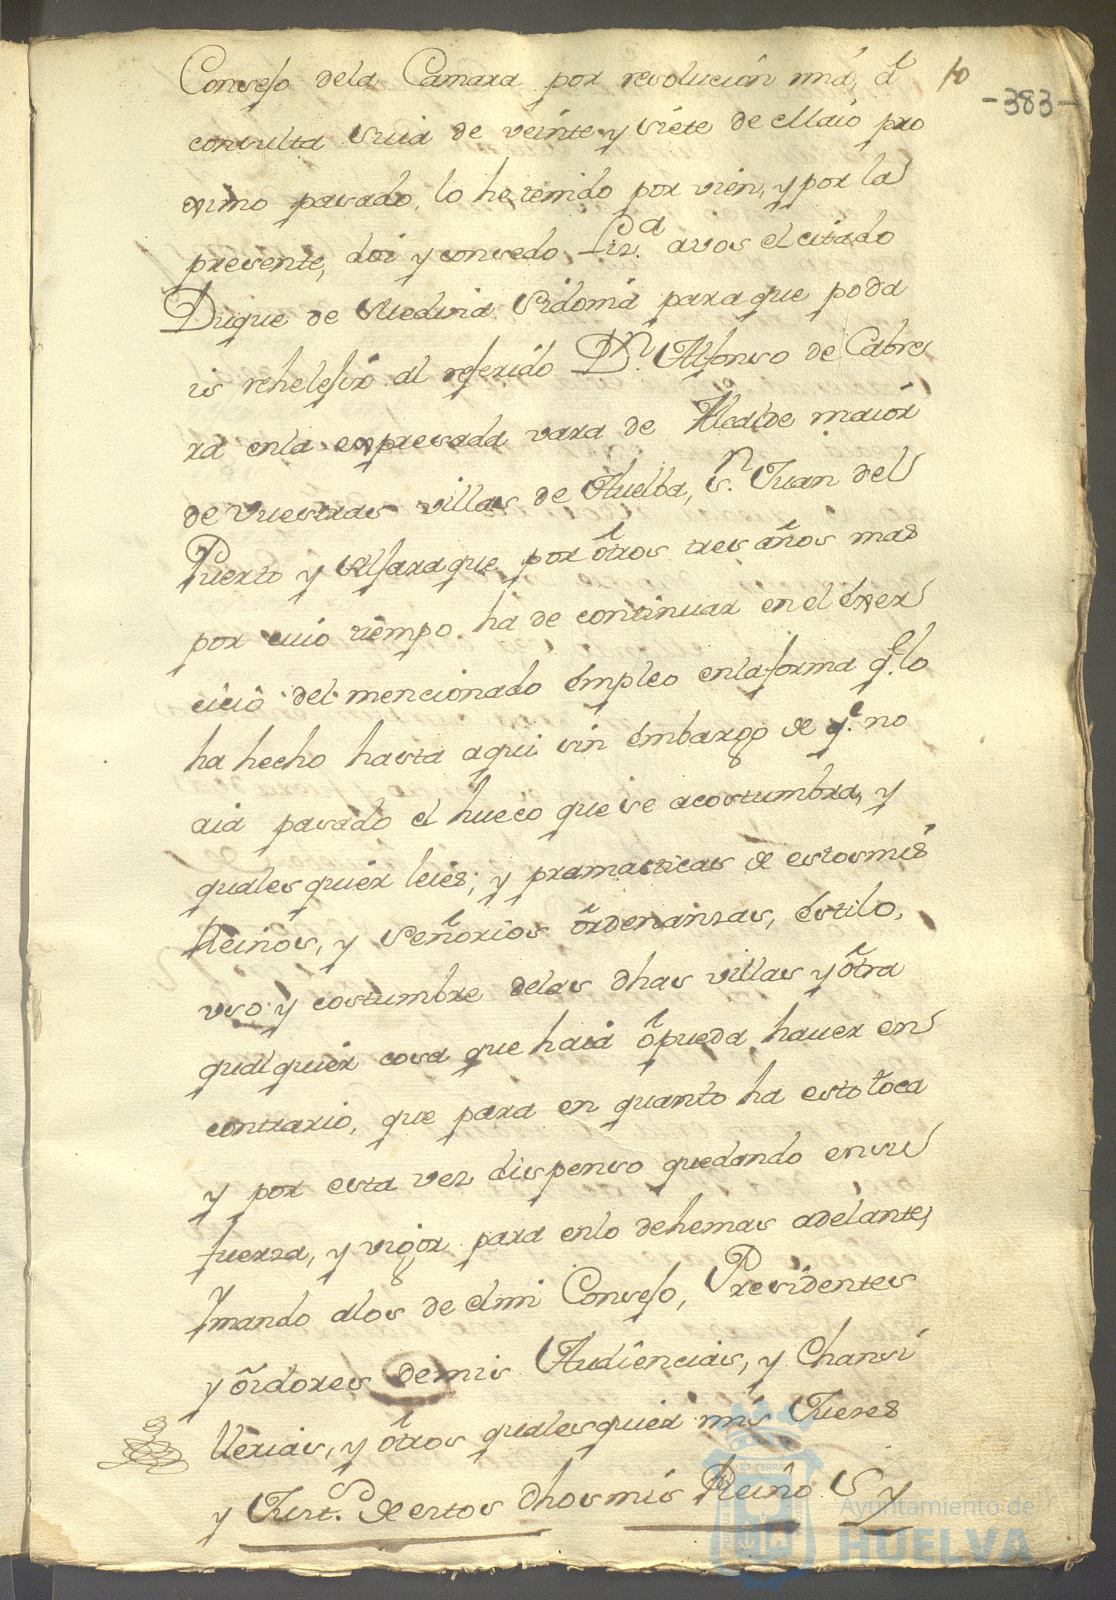 Consejo dela Camara por resolución mia, á
consulta suia de veinte y siete de Maio pro
ximo pasado, lo he tenido por vien, y por la
presente, doi y consedo Liz.ª avos el citado
Duque de Medina Sidonia para que poda
is rehelejir al referido D.n Alfonso de Cabre
ra enla expresada vara de Alcalde maior
de vuestras villas de Huelba, S.n Juan del
Puerto y Aljaraque por ótros tres años mas
por cuio tiempo ha de continuar en el éxer
cicio del mencionado émpleo enla forma q.e lo
ha hecho hasta aqui sin émbargo de q.e no
aia pasado el hueco que se acostumbra, y
quales quier leies, y pramacticas de estos mis
Reinos, y Señorios órdenansas, éstilo,
vso y costumbre delas dhas villas y ótra
qualquier cosa que haia ó pueda hauer en
contrario, que para en quanto ha esto toca
y por esta vez dispenso quedando en su
fuerza, y vigor para enlo dehemas adelante,
Y mando alos de el mi Consejo, Presidentes
y óidores de mis Audiencias, y Chansi
llerias, y ótros quales quier mis Jueces
y Just.s de estos dhos mis Reino S y
10
-383-
Ayuntamiento de
HUELVA